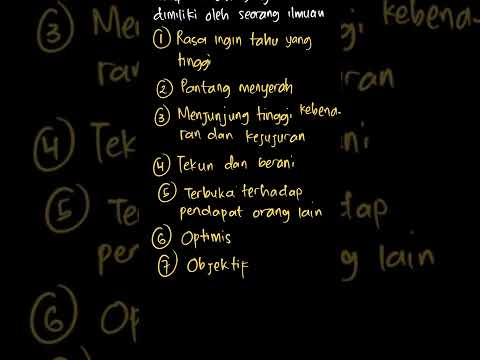 dimiliki oleh seorang ilmuan
① Rasa ingin tahu yang
tinggi
② Pantang menyerah
③ Menjunjung tinggi kebena-
ran dan kejujuran
④ Tekun dan berani
⑤ Terbuka terhadap
pendapat orang lain
⑥ Optimis
⑦ Objektif